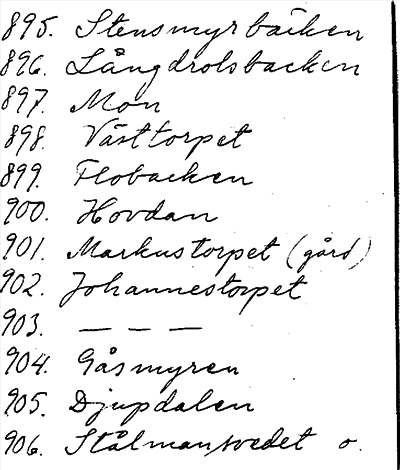 895. Stensmyrbäcken
896. Långdrolsbacken
897. Mon
898. Västtorpet
899. Flobacken
900. Hovdan
901. Markustorpet (gård)
902. Johannestorpet
903. — — —
904. Gåsmyren
905. Djupdalen
906. Stålmansvedet o.